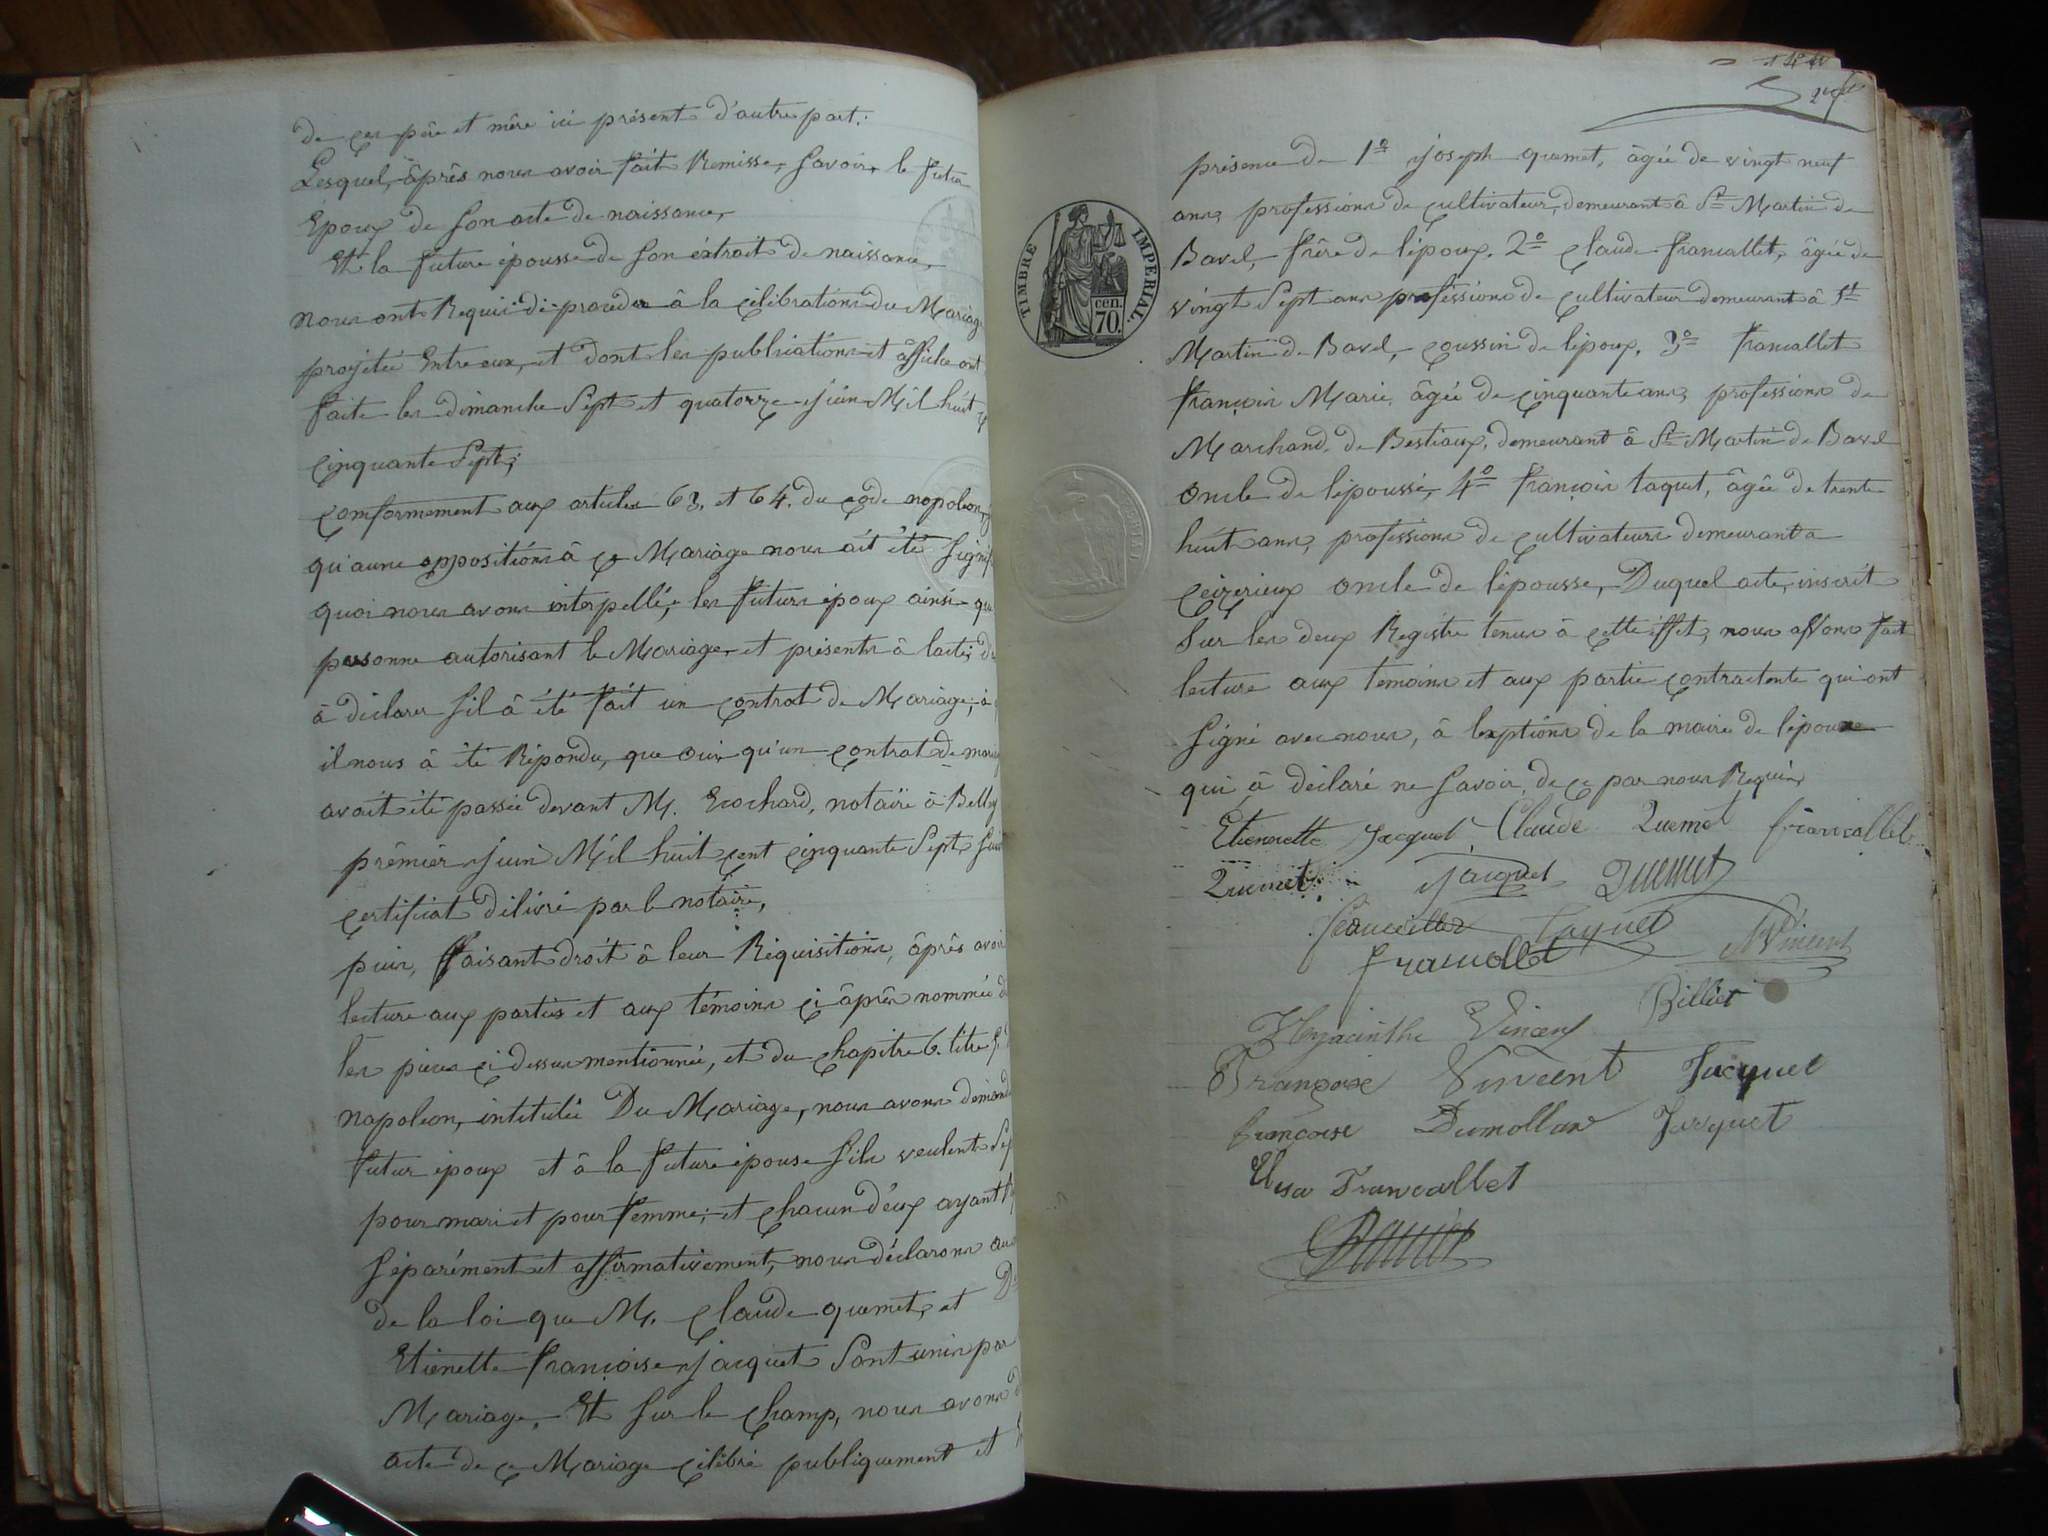 de ces père et mère ici présent d'autre part.
Lesquel, âprês nous avoir fait Remisse, savoir, le futur
Epoux de son acte de naissance,
Et la future épousse de son éxtrait de naissance,
nous ont Requis de proceder â la célébrations du Mariage
projetée Entre eux, et dont les publications et âffiche ont
faite les dimanche Sept et quatorze juin Mil huit
cinquante Sept;
comformement aux articles 63, et 64. du code napoleon,
qu'aune oppositions â ce Mariage nous ait été signif
quoi nous avons interpellée, les futurs époux ainsi que
personne autorisant le Mariage, et présents à l'acte, d
à déclarer s'il â été fait un contrat de Mariage; â
il nous â été Répondu, que oui, qu'un contrat de mariag
avait été passée devant M. Ecochard, notaire â Belley
prêmier juin Mil huit cent cinquante Sept, suiv
certificat délivré par le notaire,
puis, faisant droit â leur Réquisitions, âprês avoir
lecture aux parties et aux témoins ci âprês nommée d
les pièces ci dessus mentionnée, et du chapitre 6. titre 5.
napoléon, intitulée Du Mariage, nous avons demand
futur époux et â la future épouse s'ils veulent se p
pour mari et pour femme; et chacun d'eux ayant
séparément et affirmativement, nous déclarons au
de la loi que M. Claude quemet, et D
Etienette françoise jacquet sont unis par
Mariage. Et sur le champ, nous avons d
acte de ce Mariage célébré publiquement et
présence de 1º joseph quemet, âgée de vingt neuf
ans, professions de cultivateur, demeurant â St Martin de
Bavel, frère de l'époux. 2º claude francallet, âgée de
vingt Sept ans professions de cultivateur demeurant â St
Martin de Bavel, coussin de l'époux. 3º francallet
françois Marie âgée de cinquante ans, professions de
Marchand de Bestiaux, demeurant â St Martin de Bavel
oncle de l'épousse, 4º françois taquet, âgée de trente
huit ans, professions de cultivateurs demeurant a
ceizerieux oncle de l'épousse, Duquel acte, inscrit
sur les deux Registre tenus â cette éffet, nous avons fait
lecture aux témoins et aux partie contractente qui ont
signé avec nous, à l'exptions de la maire de l'épouxe
qui â déclaré ne savoir, de ce par nous Requis,
TIMBRE IMPERIAL.
cen. 70.
Etiennette Jacquet Claude Quemet francallet
Quemet Jacquet Quemet
Taquet
Francallet Vincent
Billiet
Hyacinthe Vincent
Françoise Vincent Jacquet
françoise Dumollard Jacquet
Elisa Francallet